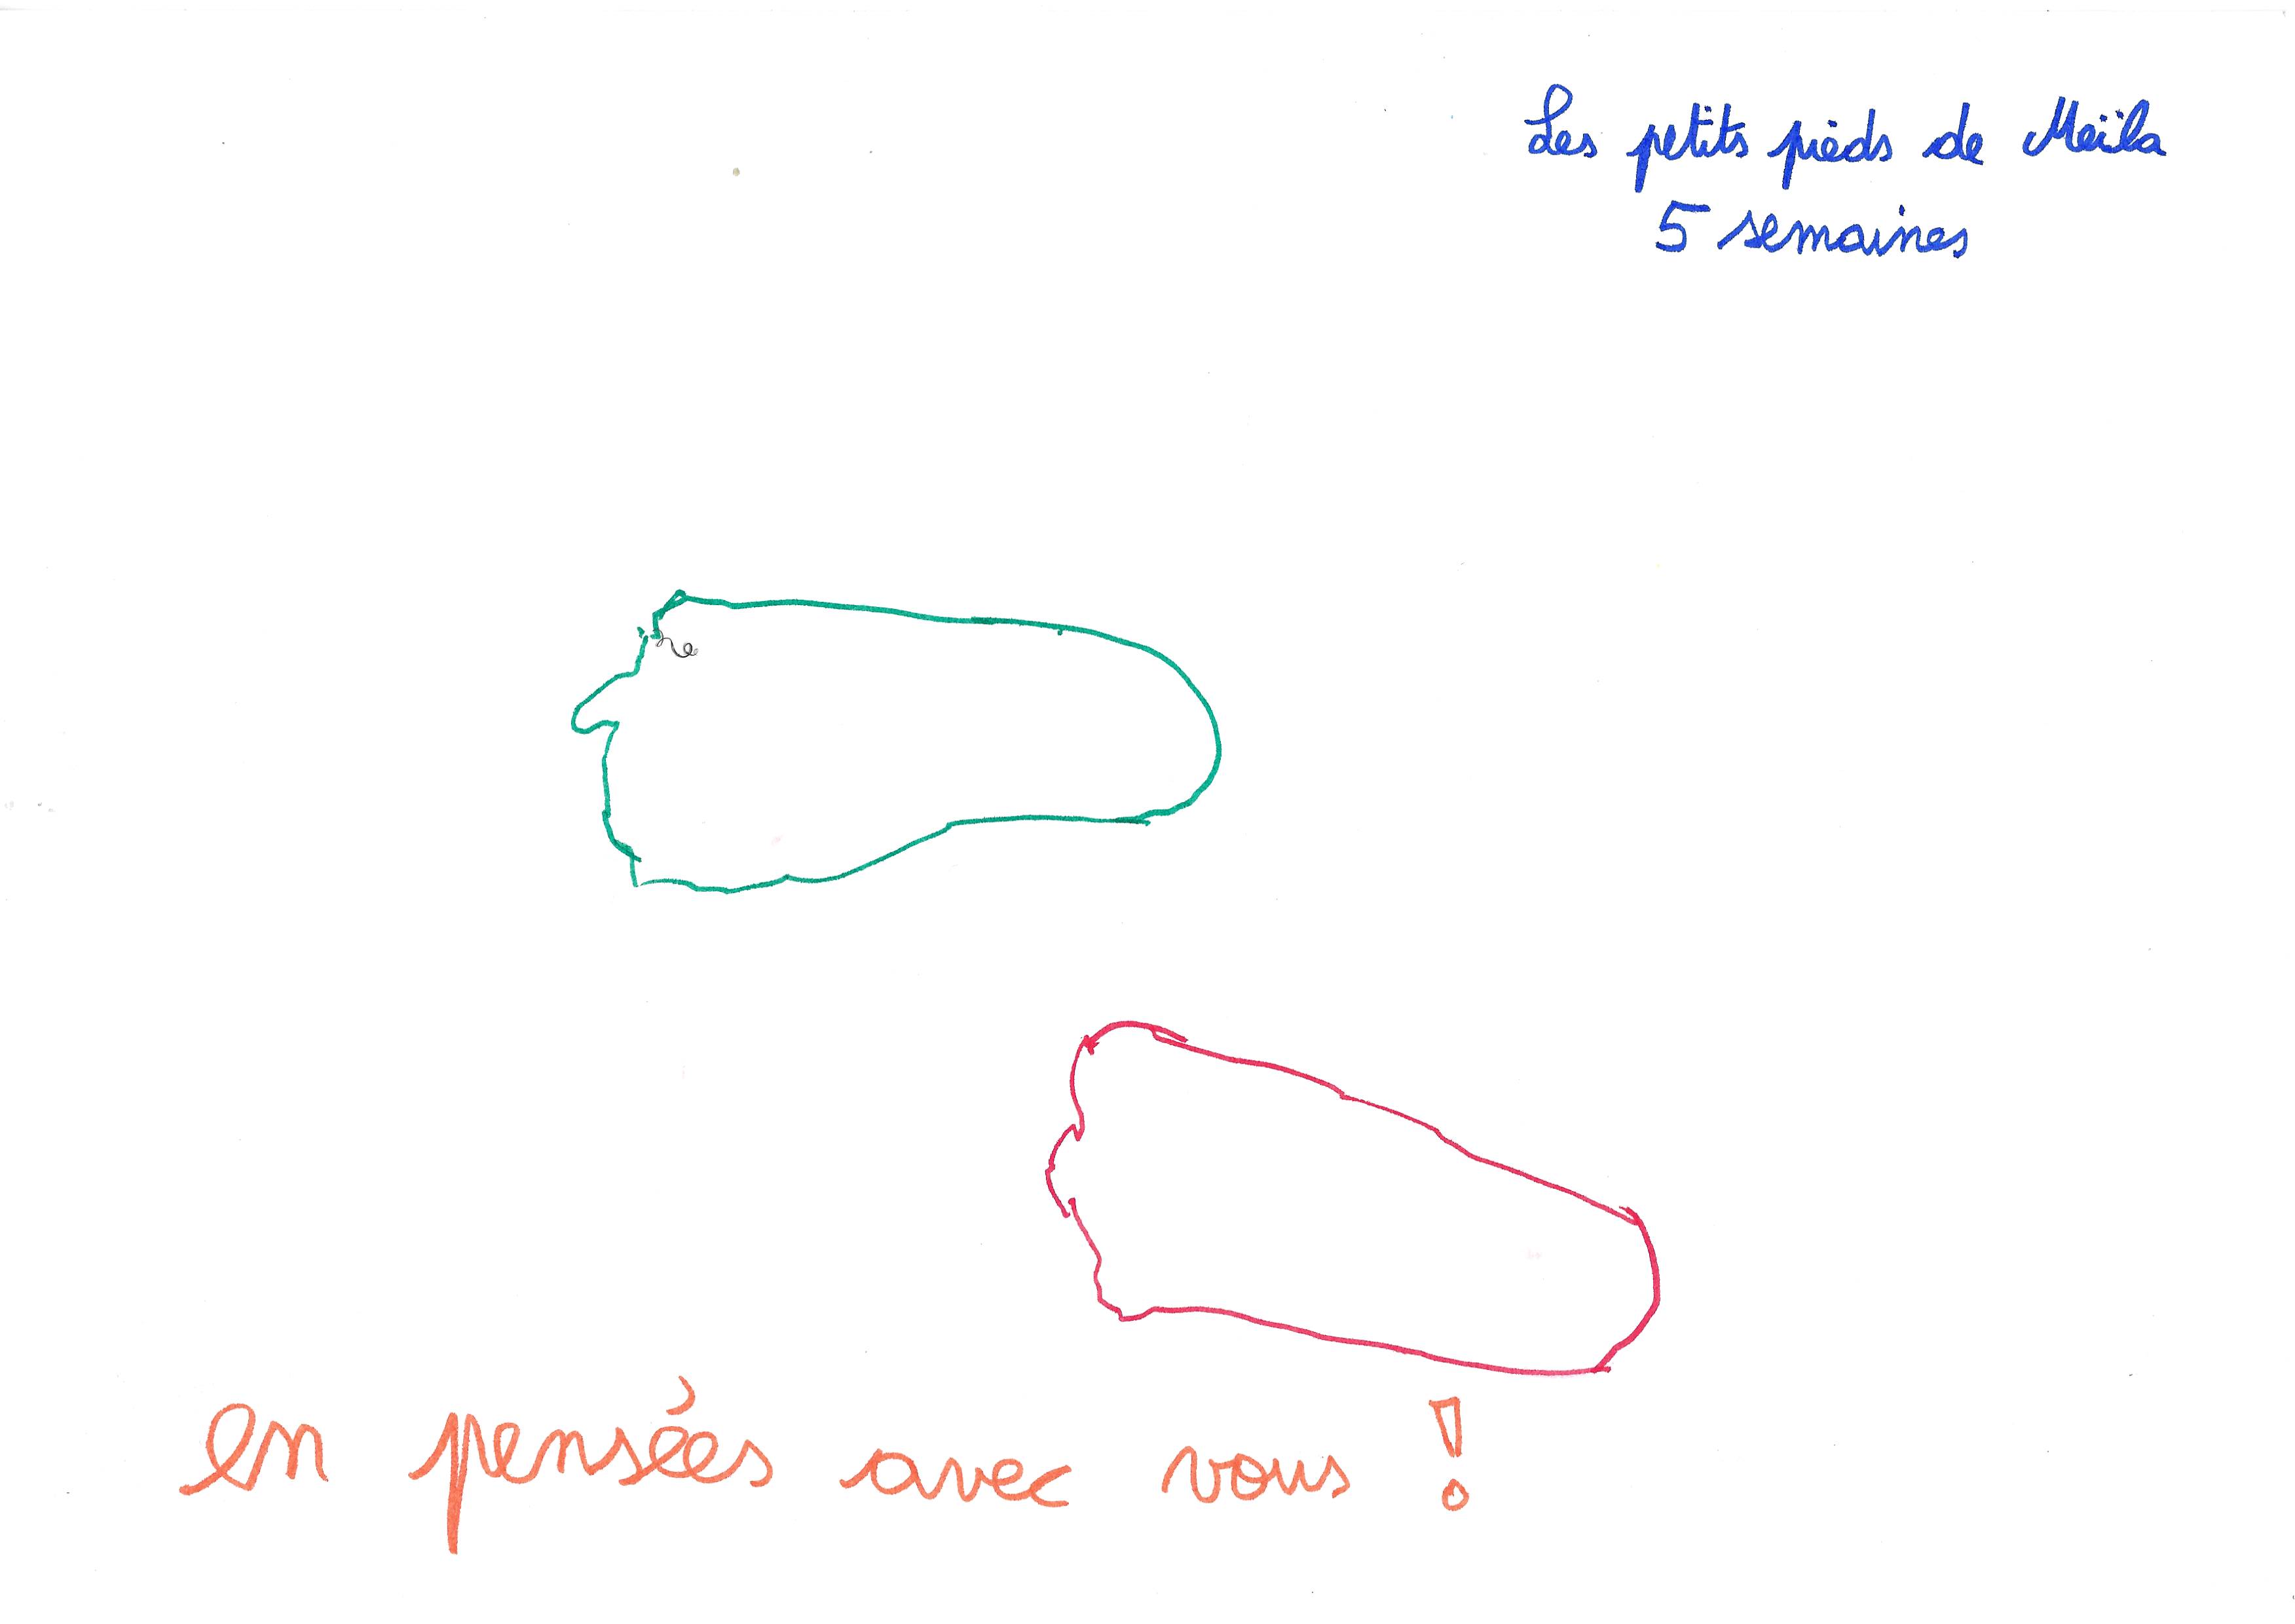 Les petits pieds de Meïla
5 semaines
en pensées avec vous !